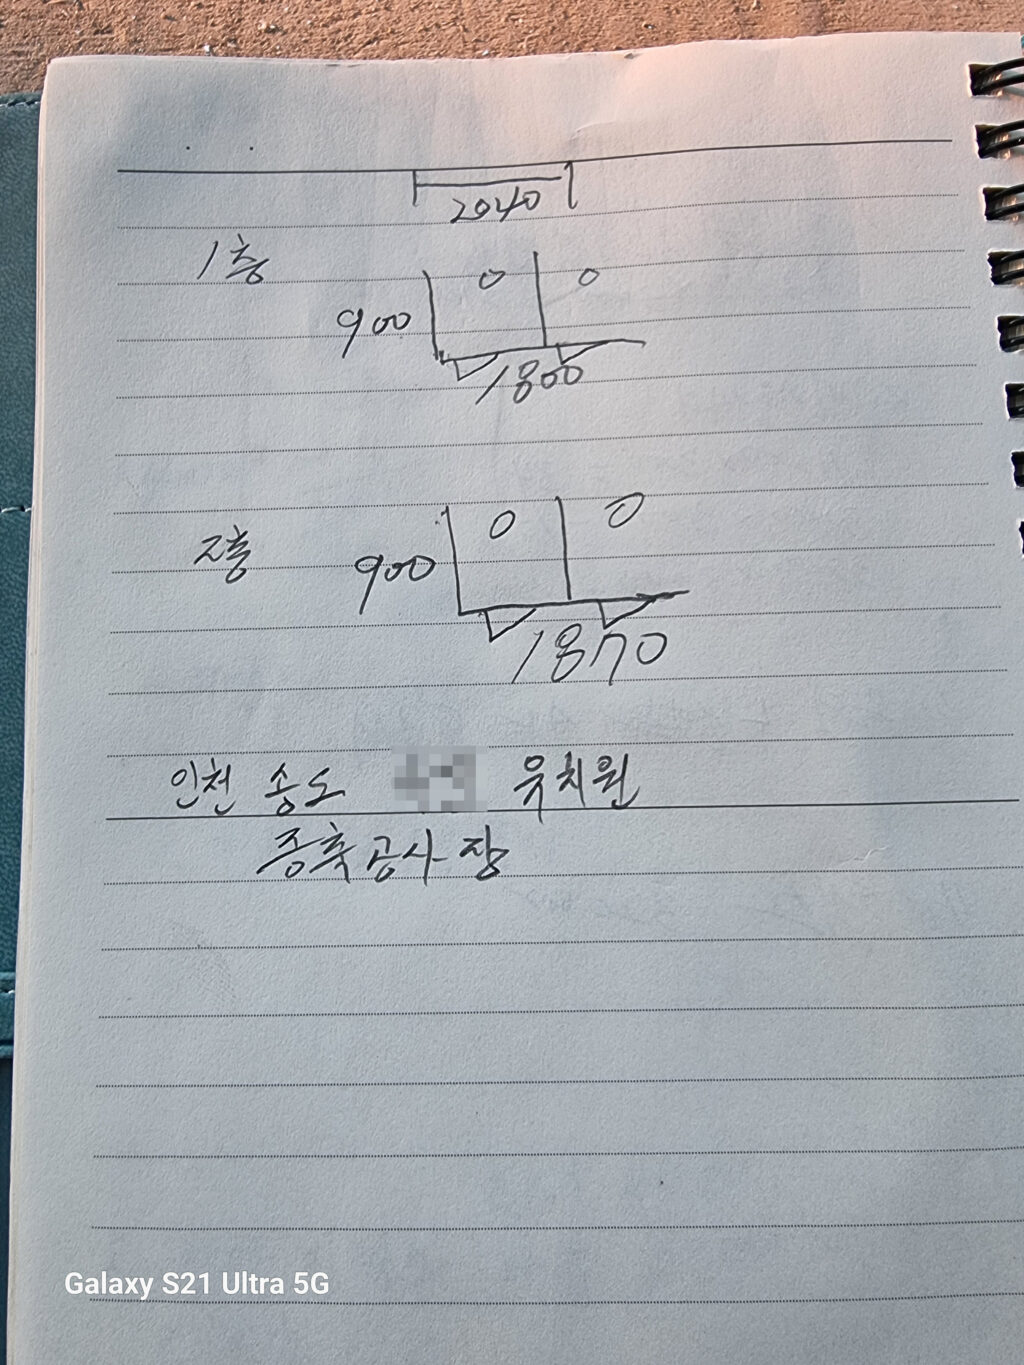 2040
1층
0 0
900
1800
2층
0 0
900
1870
인천 송도 유치원
증축공사장
Galaxy S21 Ultra 5G